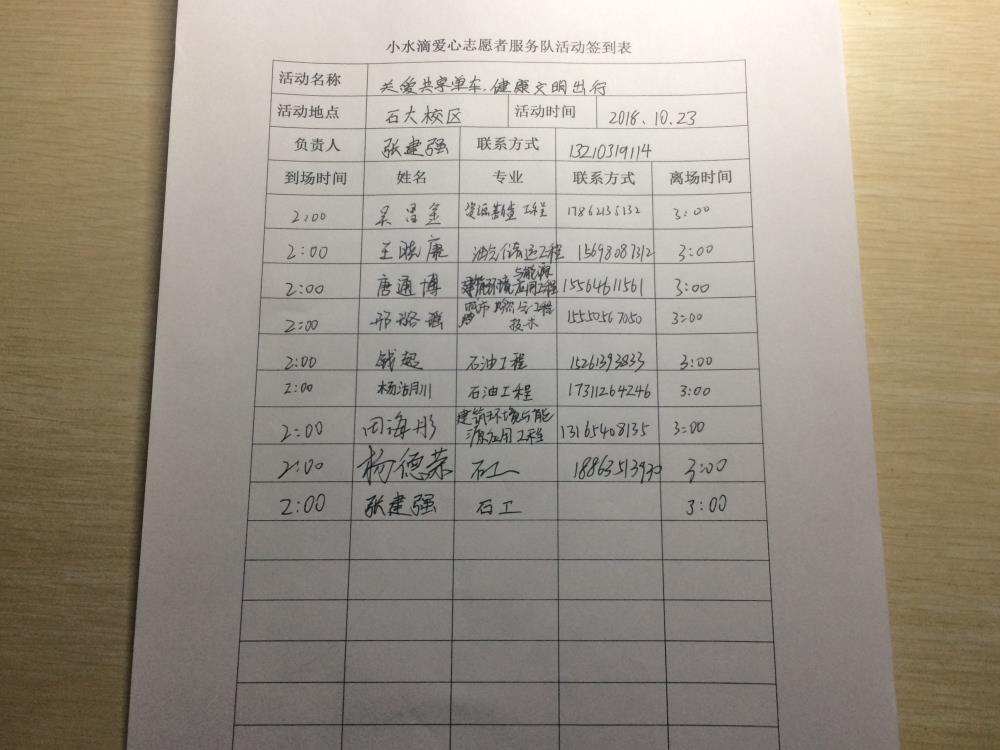 小水滴爱心志愿者服务队活动签到表
活动名称 关爱共享单车,健康文明出行
活动地点 石大校区 活动时间 2018.10.23
负责人 张建强 联系方式 13210319114
到场时间 姓名 专业 联系方式 离场时间
2:00 吴昌金 资源勘查工程 17862135132 3:00
2:00 王晓康 油气储运工程 15698087312 3:00
2:00 唐通博 建筑环境与能源应用工程 15564611561 3:00
2:00 邢路瑶 城市燃气工程技术 15550567050 3:00
2:00 钱超 石油工程 15261393833 3:00
2:00 杨洁川 石油工程 17311264246 3:00
2:00 田海彤 建筑环境与能源应用工程 13165408135 3:00
2:00 杨德荣 石工 18863513930 3:00
2:00 张建强 石工 3:00